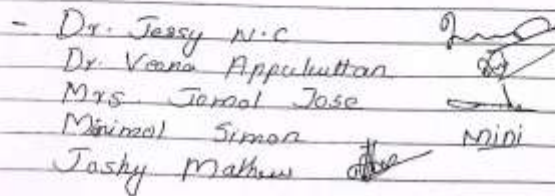 - Dr. Jessy N.C
Dr. Veena Appukuttan
Mrs. Jomol Jose
Minimol Simon Mini
Joshy Mathew